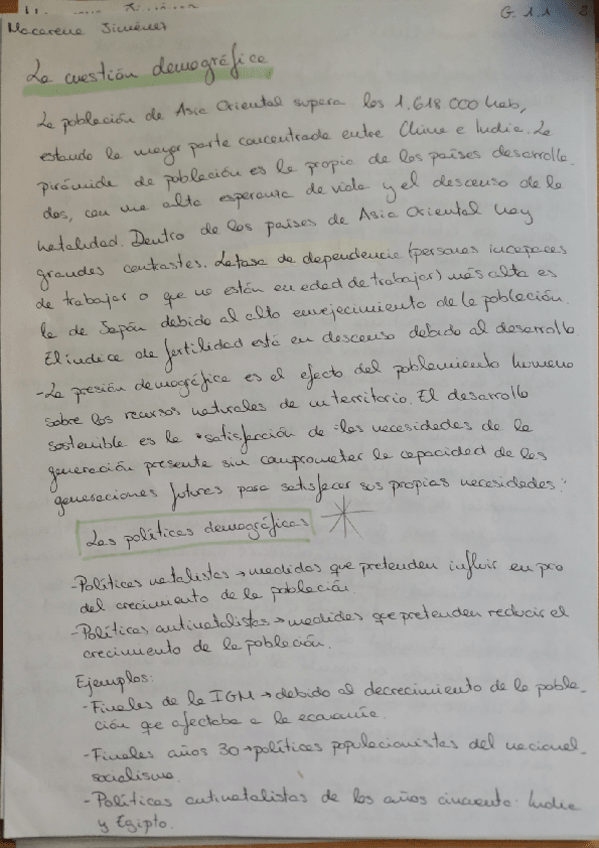 G. 1.1 2
Macarena Jiménez
La cuestión demográfica
La población de Asia Oriental supera los 1.618.000 hab,
estando la mayor parte concentrada entre China e India. La
pirámide de población es la propia de los países desarrolla-
dos, con una alta esperanza de vida y el descenso de la
natalidad. Dentro de los países de Asia Oriental hay
grandes contrastes. La tasa de dependencia (personas incapaces
de trabajar o que no están en edad de trabajar) más alta es
la de Japón debido al alto envejecimiento de la población.
El índice de fertilidad está en descenso debido al desarrollo
-La presión demográfica es el efecto del poblamiento humano
sobre los recursos naturales de un territorio. El desarrollo
sostenible es la "satisfacción de las necesidades de la
generación presente sin comprometer la capacidad de las
generaciones futuras para satisfacer sus propias necesidades."
Las políticas demográficas
-Políticas natalistas → medidas que pretenden influir en pro
del crecimiento de la población.
-Políticas antinatalistas → medidas que pretenden reducir el
crecimiento de la población.
Ejemplos:
-Finales de la IGM → debido al decrecimiento de la pobla-
ción que afectaba a la economía.
-Finales años 30 → políticas populacionistas del nacional-
socialismo.
-Políticas antinatalistas de los años cincuenta: India
y Egipto.